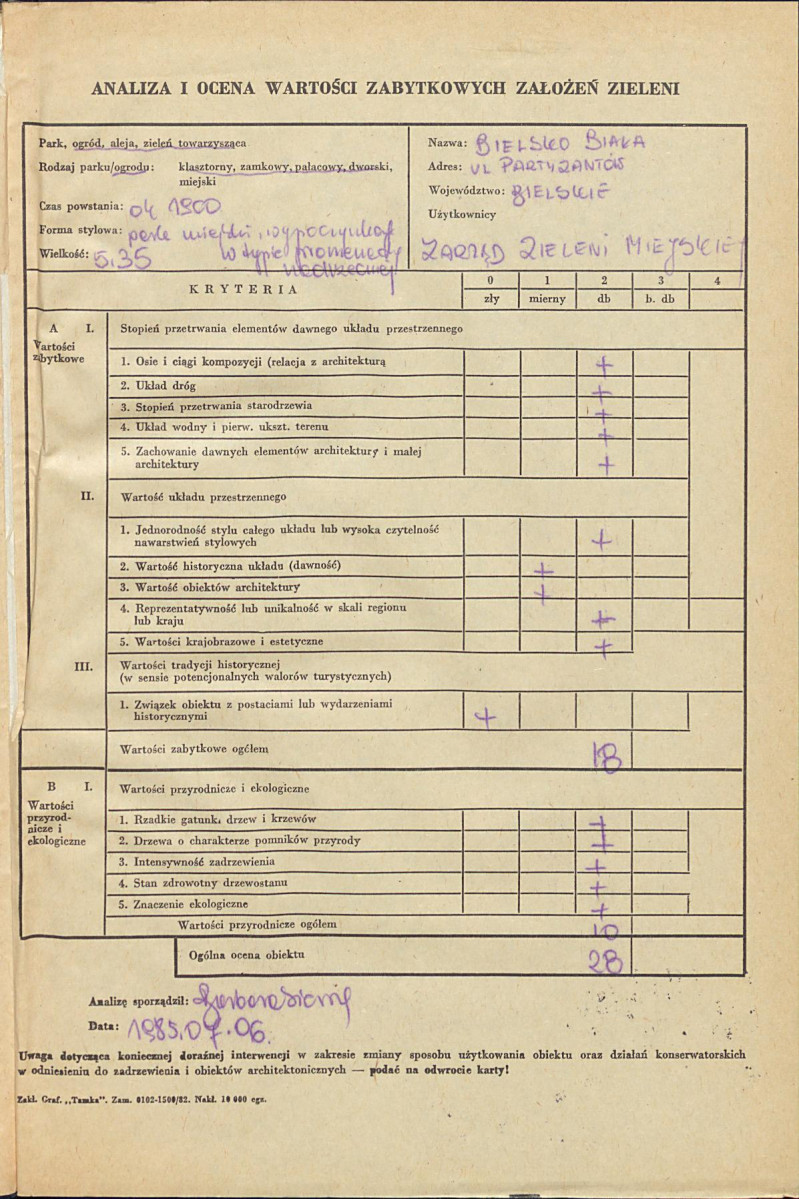 ANALIZA I OCENA WARTOŚCI ZABYTKOWYCH ZAŁOŻEŃ ZIELENI
Park, ogród, aleja, zieleń towarzysząca
Rodzaj parku/ogrodu: klasztorny, zamkowy, pałacowy, dworski,
miejski
Czas powstania: ok 1900
Forma stylowa: park miejski, wypoczynkowy
w typie promenady
nadrzecznej
Wielkość: 5.35
Nazwa: BIELSKO BIAŁA
Adres: UL PARTYZANTÓW
Województwo: BIELSKIE
Użytkownicy
ZARZĄD ZIELENI MIEJSKIEJ
KRYTERIA
0 1 2 3 4
zły mierny db b. db
A I. Stopień przetrwania elementów dawnego układu przestrzennego
Wartości
zabytkowe
1. Osie i ciągi kompozycji (relacja z architekturą +
2. Układ dróg +
3. Stopień przetrwania starodrzewia +
4. Układ wodny i pierw. ukszt. terenu +
5. Zachowanie dawnych elementów architektury i małej
architektury +
II. Wartość układu przestrzennego
1. Jednorodność stylu całego układu lub wysoka czytelność
nawarstwień stylowych +
2. Wartość historyczna układu (dawność) +
3. Wartość obiektów architektury +
4. Reprezentatywność lub unikalność w skali regionu
lub kraju +
5. Wartości krajobrazowe i estetyczne +
III. Wartości tradycji historycznej
(w sensie potencjonalnych walorów turystycznych)
1. Związek obiektu z postaciami lub wydarzeniami
historycznymi +
Wartości zabytkowe ogółem 18
B I. Wartości przyrodnicze i ekologiczne
Wartości
przyrod-
nicze i
ekologiczne
1. Rzadkie gatunki drzew i krzewów +
2. Drzewa o charakterze pomników przyrody +
3. Intensywność zadrzewienia +
4. Stan zdrowotny drzewostanu +
5. Znaczenie ekologiczne +
Wartości przyrodnicze ogółem 10
Ogólna ocena obiektu 28
Analizę sporządził: Barbara
Data: 1985.07.06.
Uwaga dotycząca koniecznej doraźnej interwencji w zakresie zmiany sposobu użytkowania obiektu oraz działań konserwatorskich
w odniesieniu do zadrzewienia i obiektów architektonicznych — podać na odwrocie karty!
Zakł. Graf. „Tamka". Zam. 0102-1500/82. Nakł. 10 000 egz.